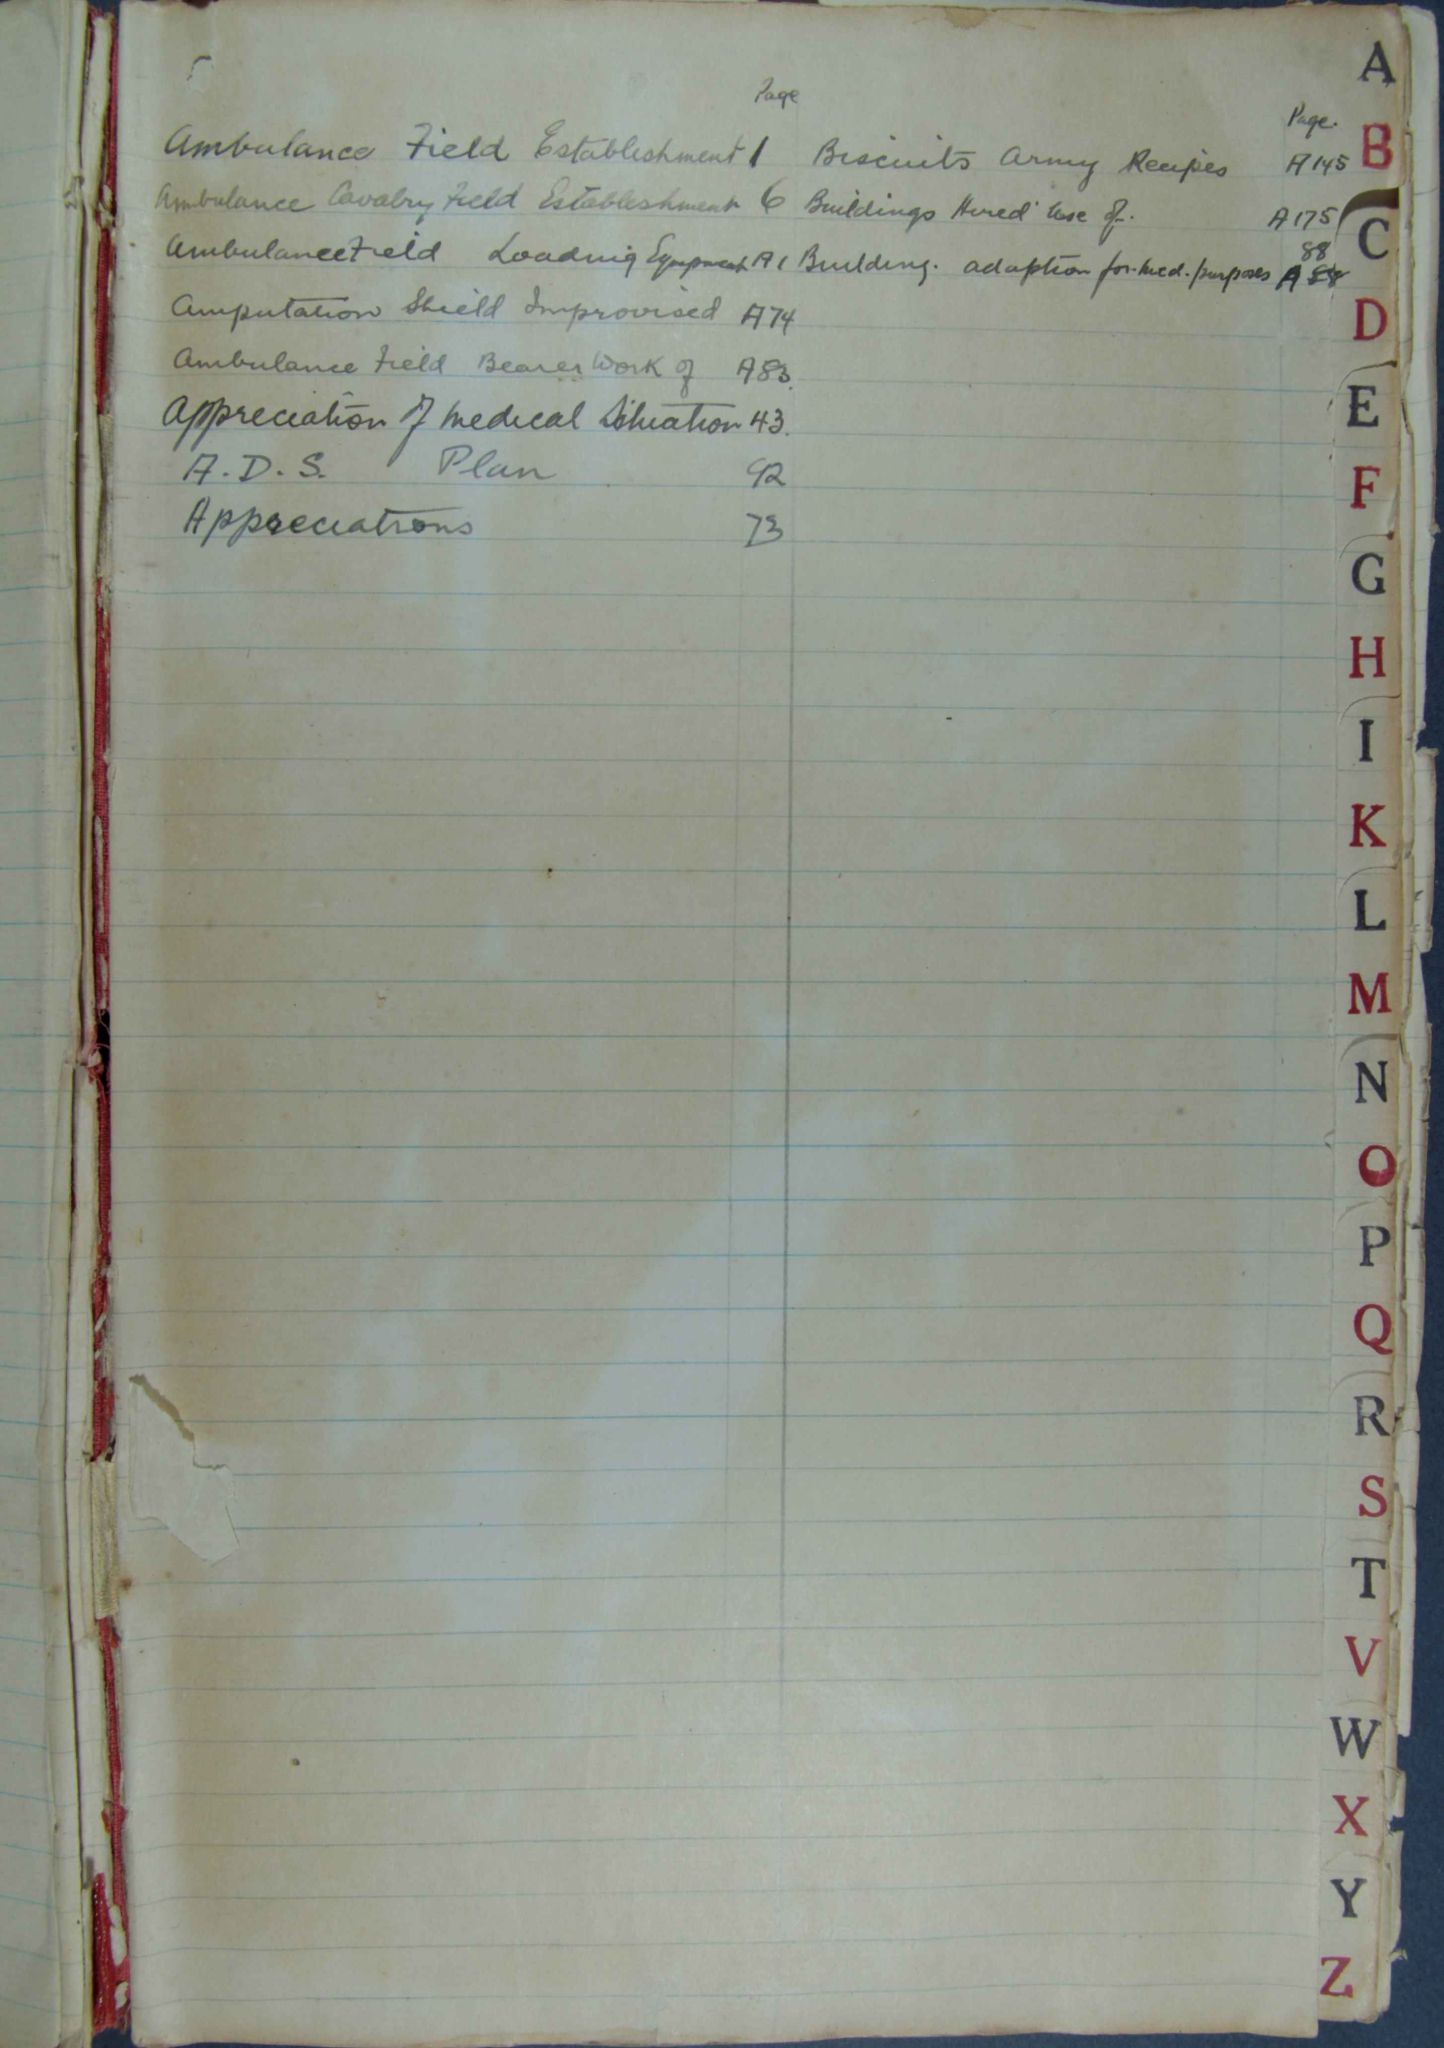 Page
Ambulance Field Establishment 1
Ambulance Cavalry Field Establishment 6
Ambulance Field Loading Equipment A1
Amputation Shield Improvised A74
Ambulance Field Bearer Work of A83.
Appreciation of Medical Situation 43.
A.D.S. Plan 92
Appreciations 73
Page.
Biscuits Army Recipes A145
Buildings Hired use of. A175
88
Building. adaption for med. purposes A
A
B
C
D
E
F
G
H
I
K
L
M
N
O
P
Q
R
S
T
V
W
X
Y
Z